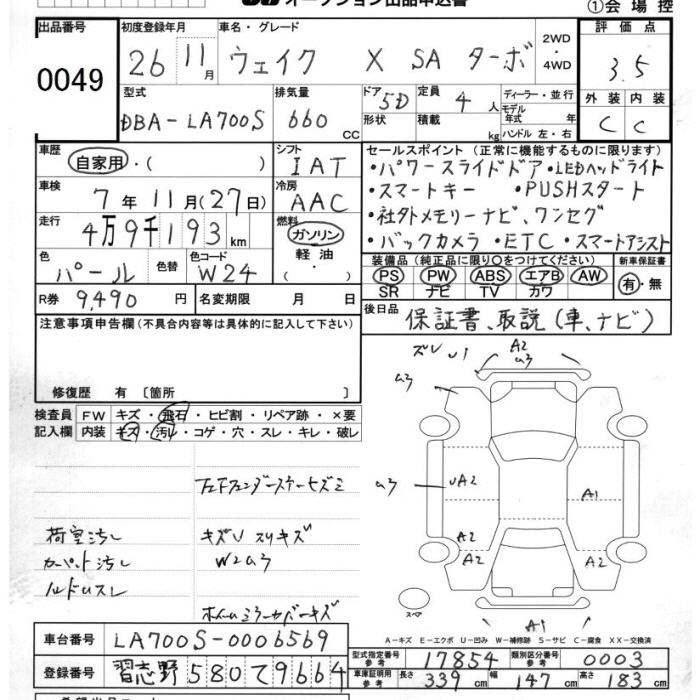 オークション出品申込書
①会場控
出品番号 0049
初度登録年月 26 11月
車名・グレード ウェイク X SA ターボ
2WD・4WD
評価点 3.5
外装 C 内装 C
型式 DBA-LA700S
排気量 660 CC
ドア 5D 形状
定員 4人 積載 kg
ディーラー・並行
モデル年式 年
ハンドル 左・右
車歴 自家用・( )
シフト IAT
車検 7年11月(27日)
冷房 AAC
走行 4万9千193km
燃料 ガソリン 軽油 ( ・ )
色 パール 色替 色コード W24
R券 9,490円 名変期限 月 日
セールスポイント (正常に機能するものに限ります)
・パワースライドドア・LEDヘッドライト
・スマートキー ・PUSHスタート
・社外メモリーナビ、ワンセグ
・バックカメラ・ETC・スマートアシスト
装備品(純正品に限り〇をつけてください) 新車保証書
PS PW ABS エアB AW 有・無
SR ナビ TV カワ
後日品 保証書、取説(車、ナビ)
注意事項申告欄(不具合内容等は具体的に記入して下さい)
修復歴 有 〔箇所 〕
検査員記入欄
FW キズ・飛石・ヒビ割・リペア跡・×要
内装 キズ・汚れ・コゲ・穴・スレ・キレ・破レ
荷室汚し キズU スリキズ
カーペット汚し W2a3
A2
a3
U1
a3
a3
A2
A1
A2
A2
A2
A2
A1
スペア
A-キズ E-エクボ U-凹み W-補修跡 S-サビ C-腐食 XX-交換済
車台番号 LA700S-0006569
登録番号 習志野 580 て 9664
型式指定番号 参考 17854 類別区分番号 参考 0003
車庫証明用 参考 長さ 339cm 幅 147cm 高さ 183cm